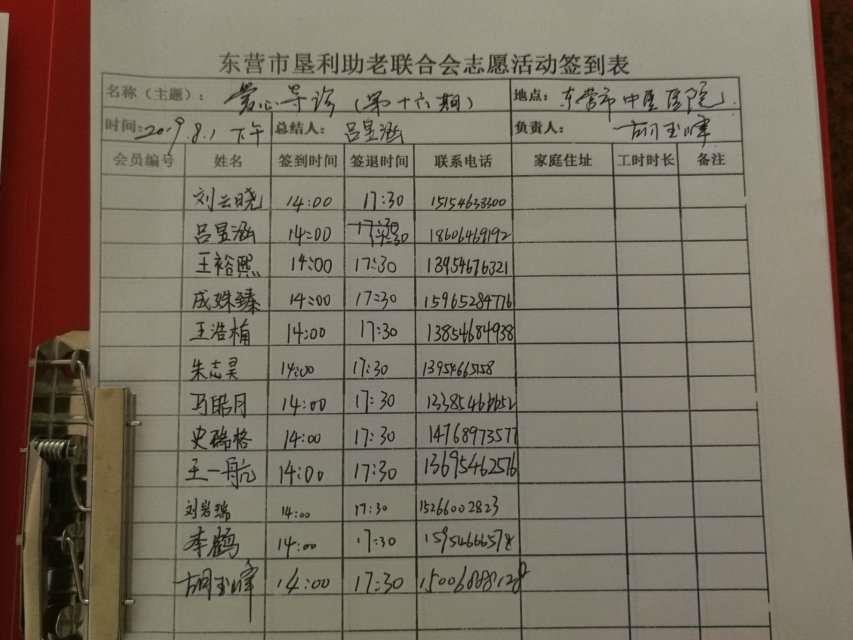 东营市垦利助老联合会志愿活动签到表
名称（主题）：爱心导诊（第十六期） 地点：东营市中医医院
时间：2019.8.1 下午 总结人：吕昱涵 负责人：胡玉峰
会员编号 姓名 签到时间 签退时间 联系电话 家庭住址 工时时长 备注
刘云晓 14:00 17:30 15154633300
吕昱涵 14:00 17:30 18606469192
王裕熙 14:00 17:30 13954676321
成姝臻 14:00 17:30 15965284776
王浩楠 14:00 17:30 13854684938
朱志昊 14:00 17:30 13954665158
马皓月 14:00 17:30
史瑞格 14:00 17:30 14768973577
王一航 14:00 17:30 13695462576
刘岩瑞 14:00 17:30 15266002823
李鹤 14:00 17:30 15954666578
胡玉峰 14:00 17:30 15006888128